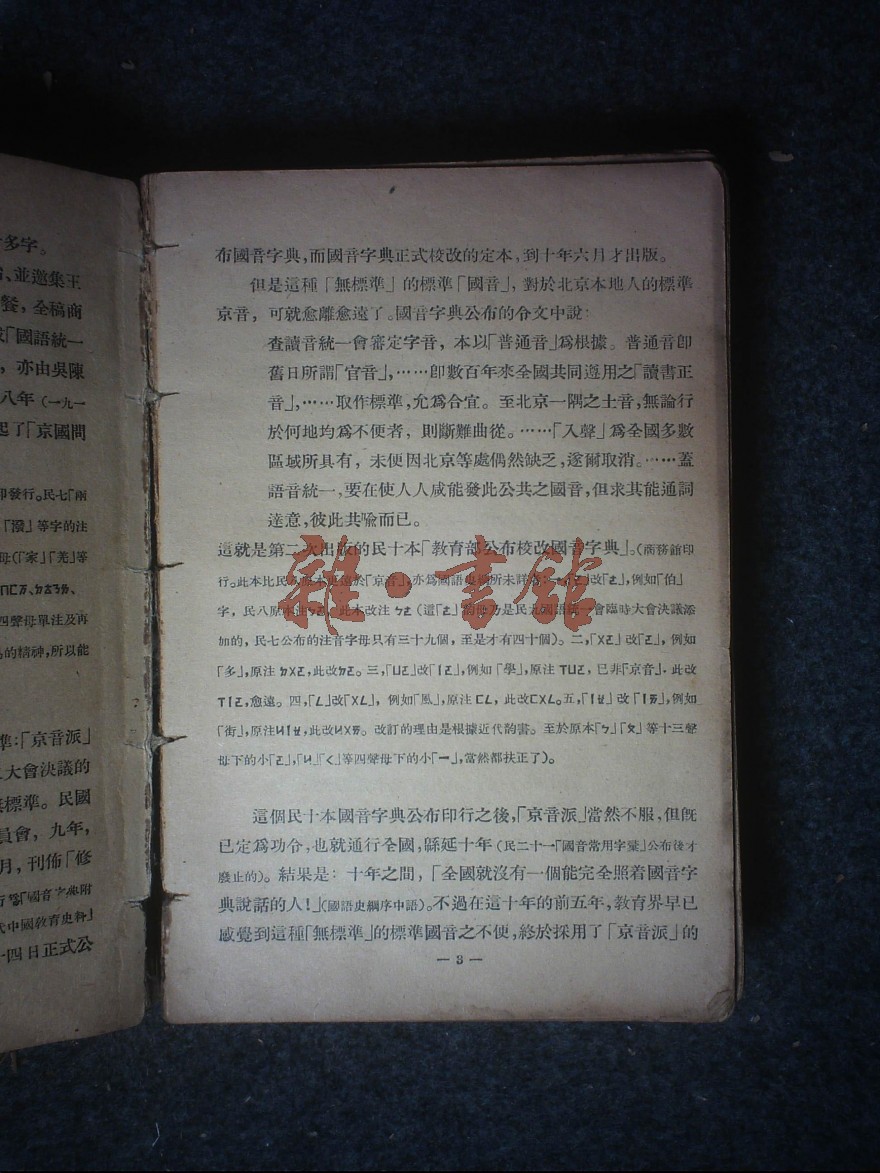 多字。
、並邀集王
餐，全稿商
「國語統一
，亦由吳陳
八年（一九一
起了「京國問
印發行。民七「兩
「潑」等字的注
母（「家」「羌」等
四聲母單注及再
的精神，所以能
準：「京音派」
大會決議的
標準。民國
員會，九年，
月，刊佈「修
「國音字典附
代中國敎育史料」
四日正式公
布國音字典，而國音字典正式校改的定本，到十年六月才出版。
但是這種「無標準」的標準「國音」，對於北京本地人的標準
京音，可就愈離愈遠了。國音字典公布的令文中說：
查讀音統一會審定字音，本以「普通音」爲根據。普通音卽
舊日所謂「官音」，……卽數百年來全國共同遵用之「讀書正
音」，……取作標準，允爲合宜。至北京一隅之土音，無論行
於何地均爲不便者，則斷難曲從。……「入聲」爲全國多數
區域所具有，未便因北京等處偶然缺乏，遂爾取消。……蓋
語音統一，要在使人人咸能發此公共之國音，但求其能通詞
達意，彼此共喩而已。
這就是第二次出版的民十本「敎育部公布校改國音字典」。（商務館印
行。此本比民八原本更遠於「京音」，亦爲國語史綱所未詳者：一，「ㄛ」改「ㄜ」，例如「伯」
字，民八原本注ㄅㄛ，此本改注ㄅㄜ（這「ㄜ」韵母乃是民九國語統一會臨時大會決議添
加的，民七公布的注音字母只有三十九個，至是才有四十個）。二，「ㄨㄛ」改「ㄛ」，例如
「多」，原注ㄉㄨㄛ，此改ㄉㄛ。三，「ㄩㄛ」改「ㄧㄛ」，例如「學」，原注ㄒㄩㄛ，已非「京音」，此改
ㄒㄧㄛ，愈遠。四，「ㄥ」改「ㄨㄥ」，例如「風」，原注ㄈㄥ，此改ㄈㄨㄥ。五，「ㄧㄝ」改「ㄧㄞ」，例如
「街」，原注ㄐㄧㄝ，此改ㄐㄧㄞ。改訂的理由是根據近代韵書。至於原本「ㄅ」「ㄆ」等十三聲
母下的小「ㄛ」，「ㄐ」「ㄑ」等四聲母下的小「ㄧ」，當然都扶正了）。
這個民十本國音字典公布印行之後，「京音派」當然不服，但旣
已定爲功令，也就通行全國，緜延十年（民二十一「國音常用字彙」公布後才
廢止的）。結果是：十年之間，「全國就沒有一個能完全照着國音字
典說話的人！」（國語史綱序中語）。不過在這十年的前五年，敎育界早已
感覺到這種「無標準」的標準國音之不便，終於採用了「京音派」的
— 3 —
雜·書館